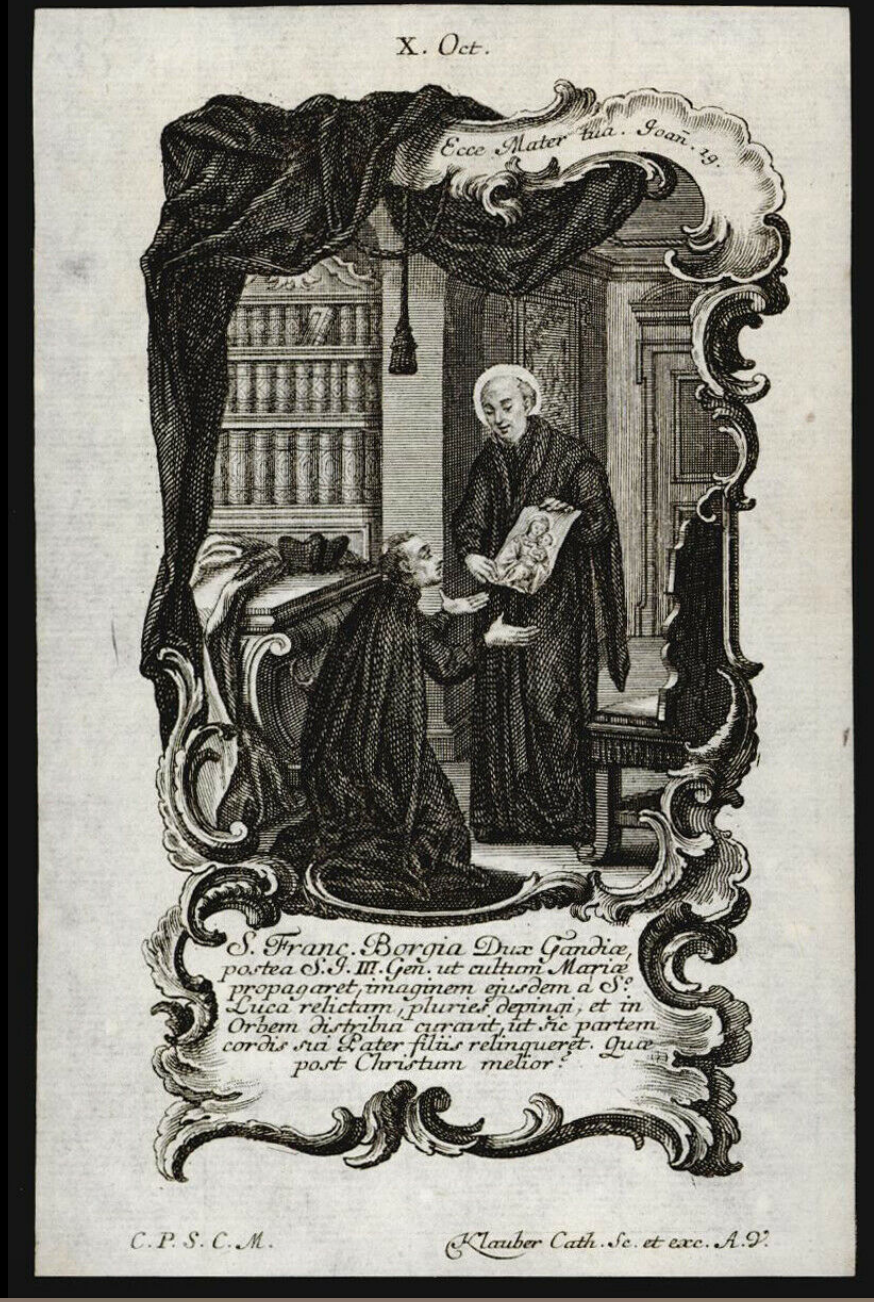 X. Oct.
Ecce Mater tua. Joan̄. 19.
S. Franc. Borgia Dux Gandiæ,
postea S. J. III. Gen. ut cultum Mariæ
propagaret, imaginem ejusdem à S.º
Luca relictam, pluries depingi, et in
Orbem distribui curavit, ut sic partem
cordis sui Pater filiis relinqueret. Quæ
post Christum melior?
C. P. S. C. M.
Klauber Cath. Sc. et exc. A. V.